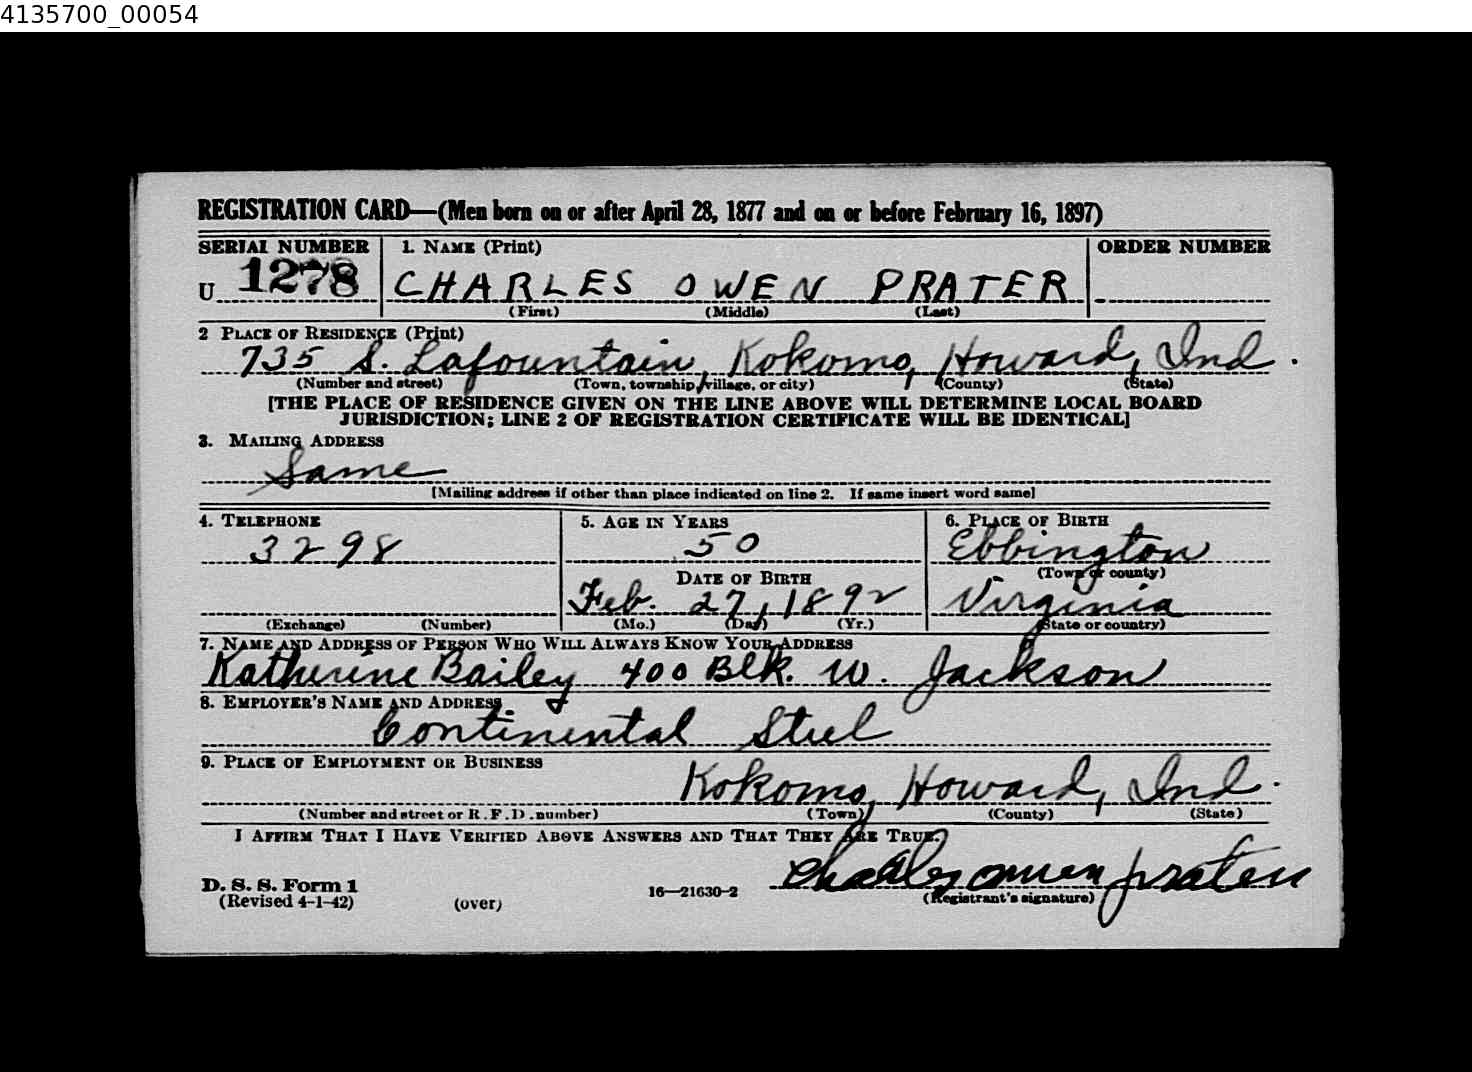 4135700_00054
REGISTRATION CARD—(Men born on or after April 28, 1877 and on or before February 16, 1897)
SERIAL NUMBER 1. NAME (Print) ORDER NUMBER
U 1278 CHARLES OWEN PRATER
(First) (Middle) (Last)
2 PLACE OF RESIDENCE (Print)
735 S. Lafountain, Kokomo, Howard, Ind.
(Number and street) (Town, township, village, or city) (County) (State)
[THE PLACE OF RESIDENCE GIVEN ON THE LINE ABOVE WILL DETERMINE LOCAL BOARD
JURISDICTION; LINE 2 OF REGISTRATION CERTIFICATE WILL BE IDENTICAL]
3. MAILING ADDRESS
Same
[Mailing address if other than place indicated on line 2. If same insert word same]
4. TELEPHONE 5. AGE IN YEARS 6. PLACE OF BIRTH
3298 50 Ebbington
DATE OF BIRTH (Town or county)
Feb. 27, 1892 Virginia
(Exchange) (Number) (Mo.) (Day) (Yr.) (State or country)
7. NAME AND ADDRESS OF PERSON WHO WILL ALWAYS KNOW YOUR ADDRESS
Katherine Bailey 400 Blk. W. Jackson
8. EMPLOYER'S NAME AND ADDRESS
Continental Steel
9. PLACE OF EMPLOYMENT OR BUSINESS
Kokomo, Howard, Ind.
(Number and street or R. F. D. number) (Town) (County) (State)
I AFFIRM THAT I HAVE VERIFIED ABOVE ANSWERS AND THAT THEY ARE TRUE.
Charles Owen Prater
D. S. S. Form 1
(Revised 4-1-42) (over) 16—21630-2 (Registrant's signature)